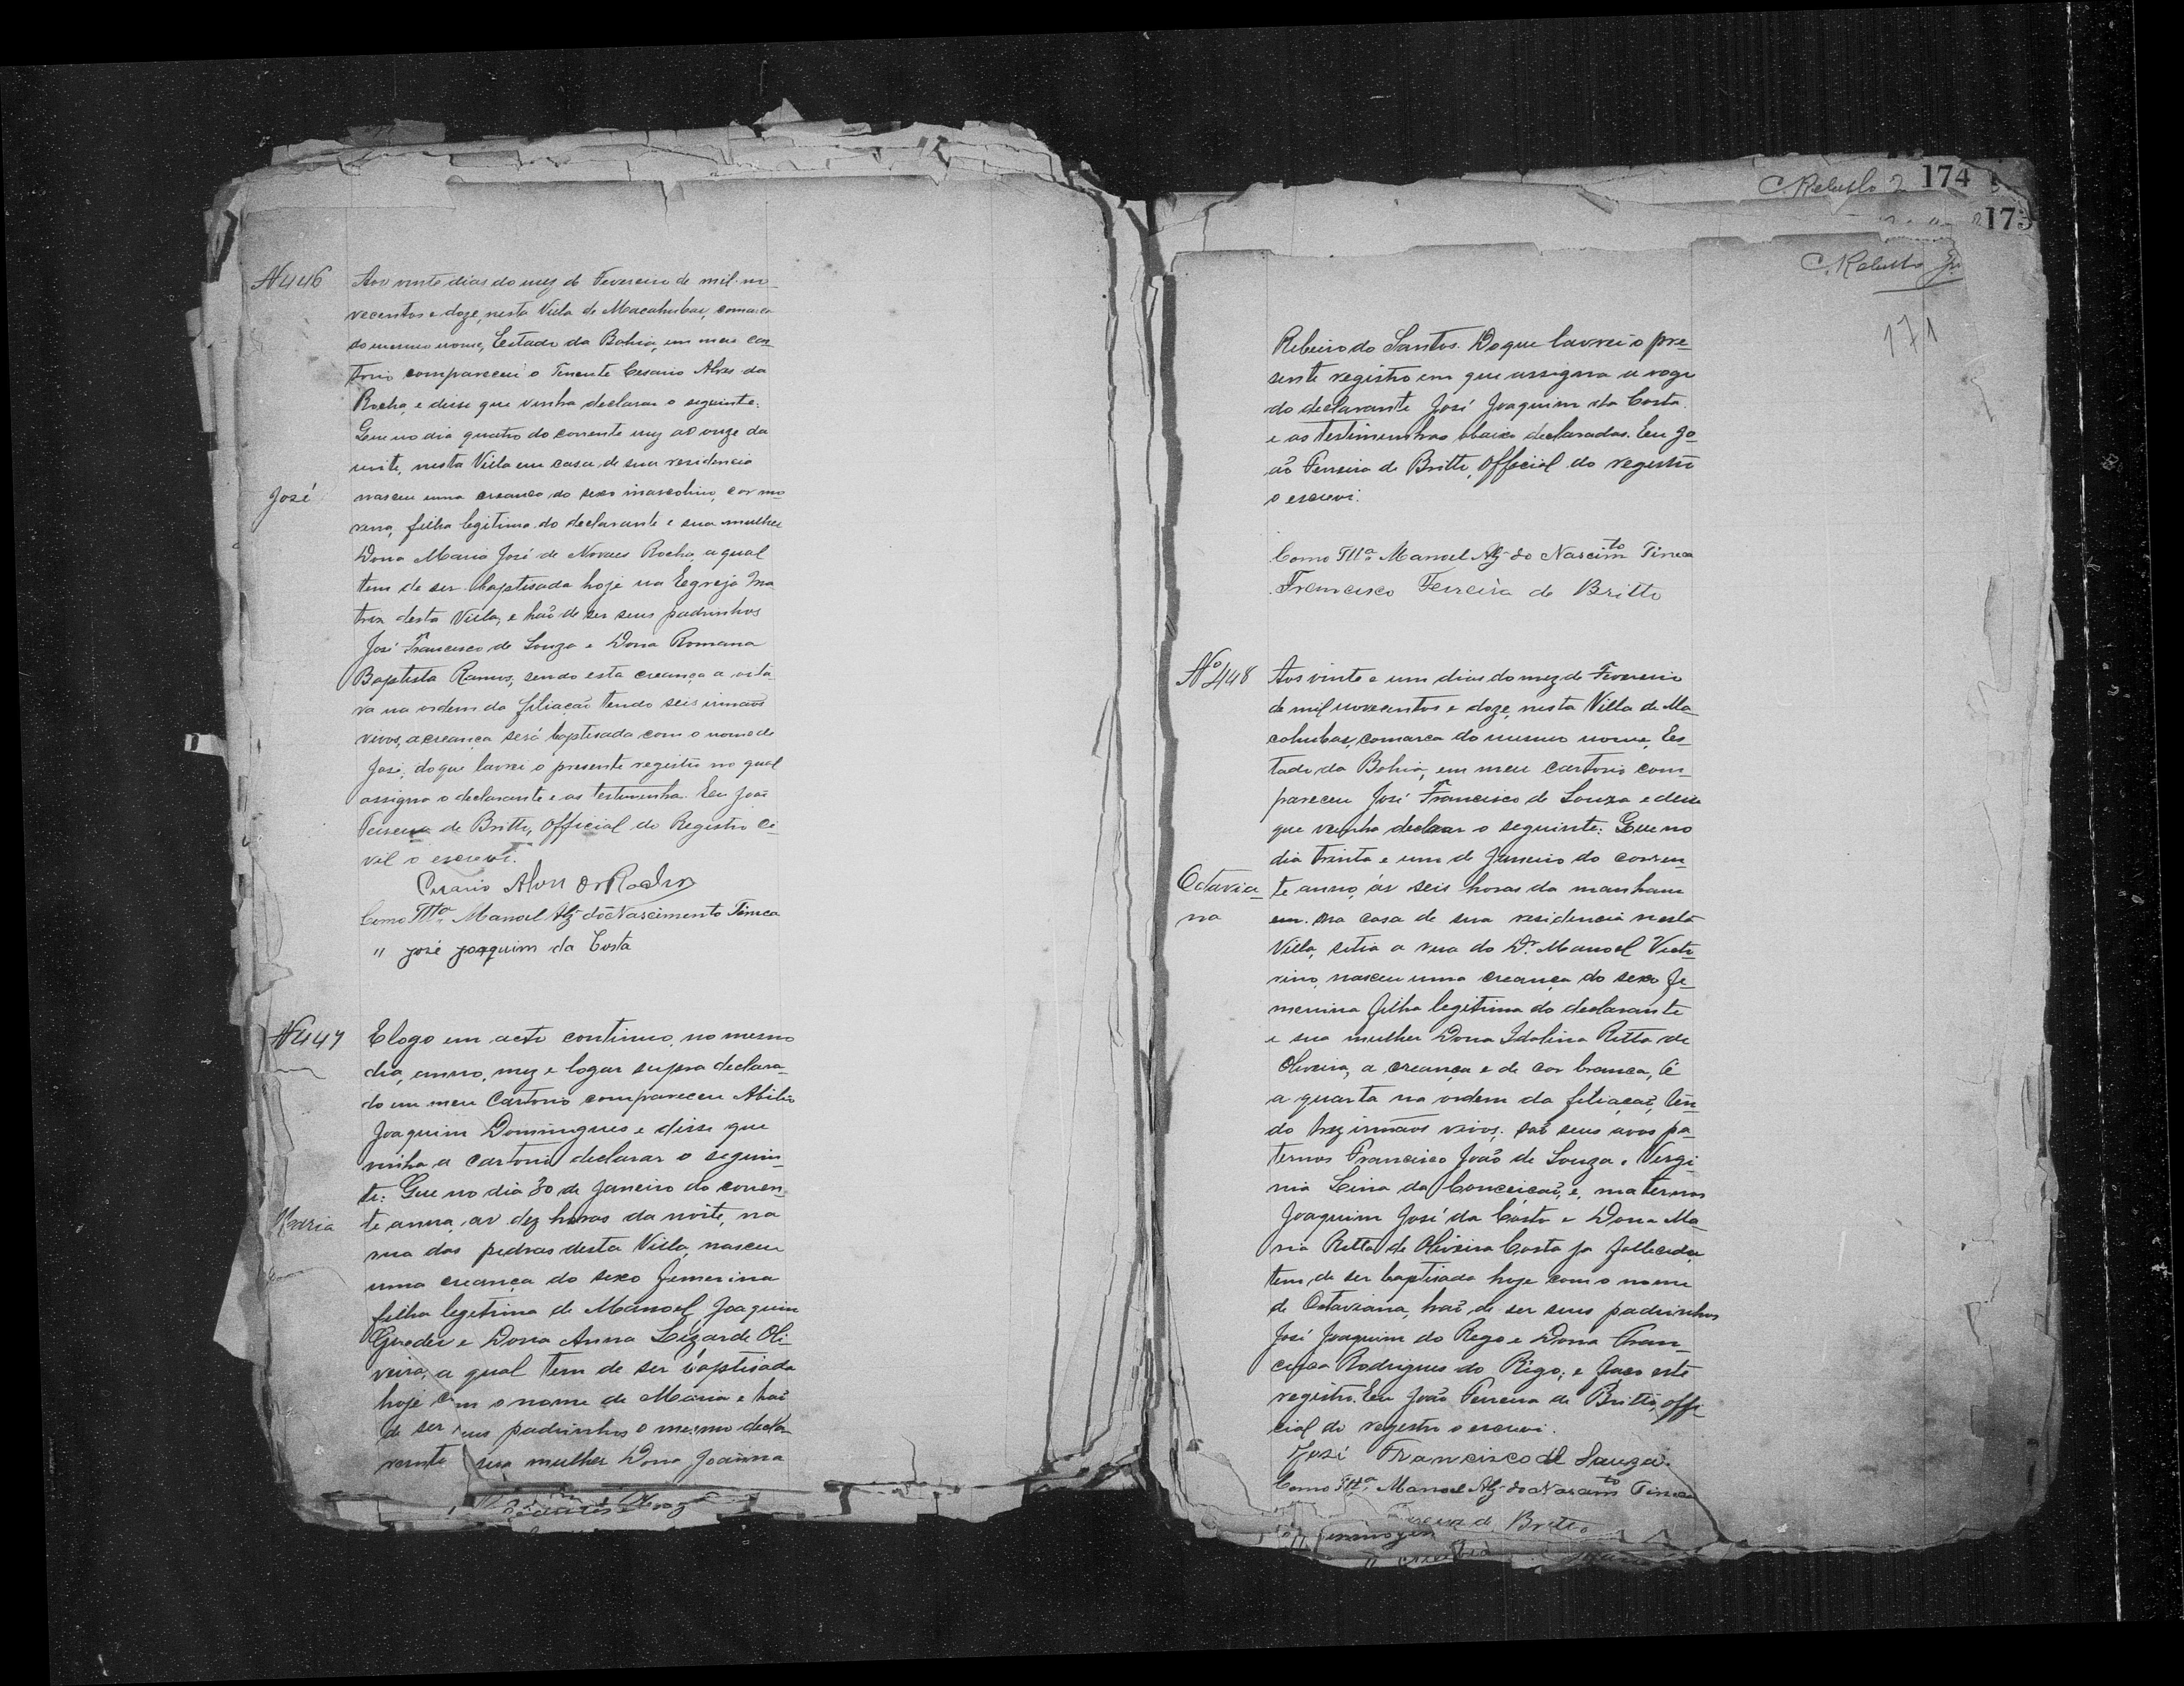 N 446
Aos vinte dias do mez de Fevereiro de mil no-
vecentos e doze, nesta Villa de Macahubas, comarca
do mesmo nome, Estado da Bahia, em meu car-
torio compareceu o Tenente Cesario Alves da
Rocha, e disse que vinha declarar o seguinte:
Que no dia quatro do corrente mez as onze da
noite, nesta Villa em casa de sua residencia
José
nasceu uma creança do sexo masculino, cor mo-
rena, filha legitima do declarante e sua mulher
Dona Maria José de Novaes Rocha, a qual
tem de ser baptisada hoje na Egreja Ma
triz desta Villa, e hão de ser seus padrinhos
José Francisco de Souza e Dona Romana
Baptista Ramos, sendo esta creança a oita-
va na ordem da filiação tendo seis irmãos
vivos, a creança será baptisada com o nome de
José; do que lavrei o presente registro no qual
assigna o declarante e as testimunha. Eu João
Ferreira de Britto, Official do Registro Ci-
vil o escrevi.
Cesario Alves da Rocha
Como Ttª Manoel Alz do Nascimento Tinca
" José Joaquim da Costa
N 447
E logo em acto continuo, no mesmo
dia, anno, mez e logar supra declara-
do em meu Cartorio compareceu Abilio
Joaquim Domingues e disse que
vinha a cartorio declarar o seguin-
te: Que no dia 30 de Janeiro do corren-
Maria
te anno, as dez horas da noite, na
rua das pedras desta Villa, nasceu
uma creança do sexo femenina
filha legitima de Manoel Joaquim
Guedes e Dona Anna Lizarde Oli-
veira, a qual tem de ser baptisada
hoje com o nome de Maria e hão
de ser seus padrinhos o mesmo decla-
rante sua mulher Dona Joanna
C. Rabello 174
173
C. Rabello Jr.
171
Ribeiro do Santos. Do que lavrei o pre-
sente registro em que assigna a rogo
do declarante José Joaquim da Costa
e as testimunhas abaixo declaradas. Eu Jo-
ão Ferreira de Britto, Official do registro
o escrevi.
Como Ttª Manoel Alz do Nascimto Tinca
Francisco Ferreira de Britto
Nº 448
Aos vinte e um dias do mez de Fevereiro
de mil novecentos e doze, nesta Villa de Ma
cahubas, comarca do mesmo nome, Es-
tado da Bahia, em meu cartorio com-
pareceu José Francisco de Souza e disse
que vinha declarar o seguinte: Que no
dia trinta e um de Janeiro do corren-
Octavia-
na
te anno, ás seis horas da manham
em sua casa de sua residencia nesta
Villa, sitia a rua do Dr. Manoel Victo-
rino, nasceu uma creança do sexo fe-
menina filha legitima do declarante
e sua mulher Dona Idalina Ritta de
Oliveira, a creança e de cor branca, é
a quarta na ordem da filiação, ten-
do trez irmãos vivos; são seus avos pa-
ternos Francisco João de Souza e Vergi-
nia Lina da Conceição, e, maternos
Joaquim José da Costa e Dona Ma-
ria Ritta de Oliveira Costa ja fallecida,
tem, de ser baptisada hoje com o nome
de Octaviana, hão de ser seus padrinhos
José Joaquim do Rego e Dona Fran-
cisca Rodrigues do Rego; e faço este
registro. Eu João Ferreira de Britto, offi-
cial do registro o escrevi.
José Francisco de Souza.
Como Ttª Manoel Alz do Nascimto Tinca
de Britto